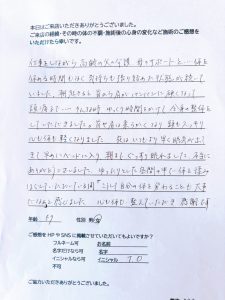 本日はご来店いただきありがとうございました。
ご来店の経緯・その時の体の不調・施術後の心身の変化など施術のご感想を
いただけたら幸いです。
仕事をしながら高齢の父の介護、母のサポートと… 体を
休める時間もなく気持ちも張り詰めた状態が続いて
しました。朝起きると首から肩がパンパンに硬くなり
頭痛まで…。 ゆっくり時間をかけて全身の整体を
していただきました。首や肩は柔らかくなり 頭もスッキリ
心も体も軽くなりました。 夜はいつもより早く
早めにベッドに入り 朝までぐっすり眠れました。本当に
ありがとうございました。ゆったりとした空間の中で 体を揉み
ほぐしていただいている間 自分の体を労わることも大事
だなぁと感じました。 心も体も整えていただき 感謝です
年齢 性別 男・女
ご感想をHPやSNSに掲載させていただいてもよいですか?
フルネーム可 お名前
名字だけなら可 名字
イニシャルなら可 イニシャル T.O
不可
ご協力いただきありがとうございました。